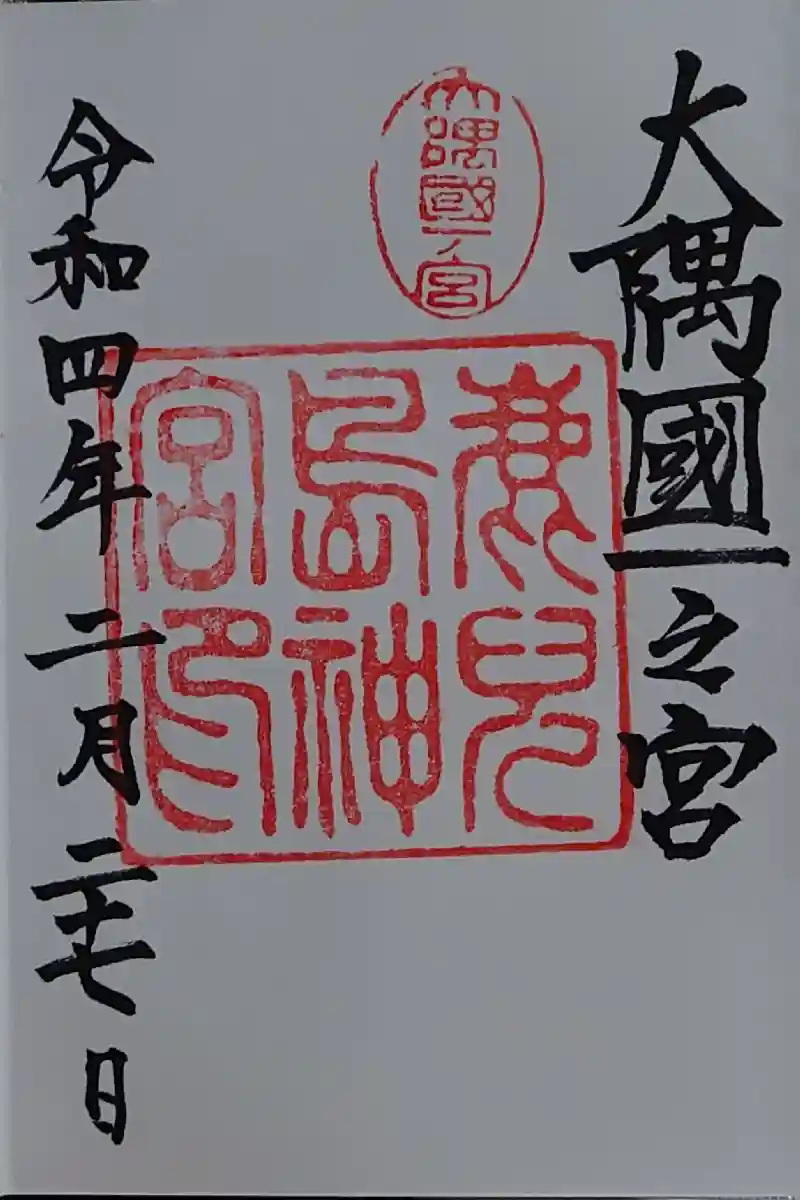 大隅國一之宮
大隅國一ノ宮
鹿兒
島神
宮印
令和四年二月二十七日